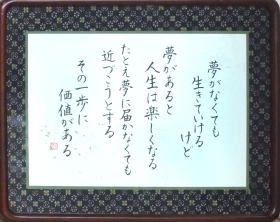 夢がなくても
生きていける
けど
夢があると
人生は楽しくなる
たとえ夢に届かなくても
近づこうとする
その一歩に
価値がある